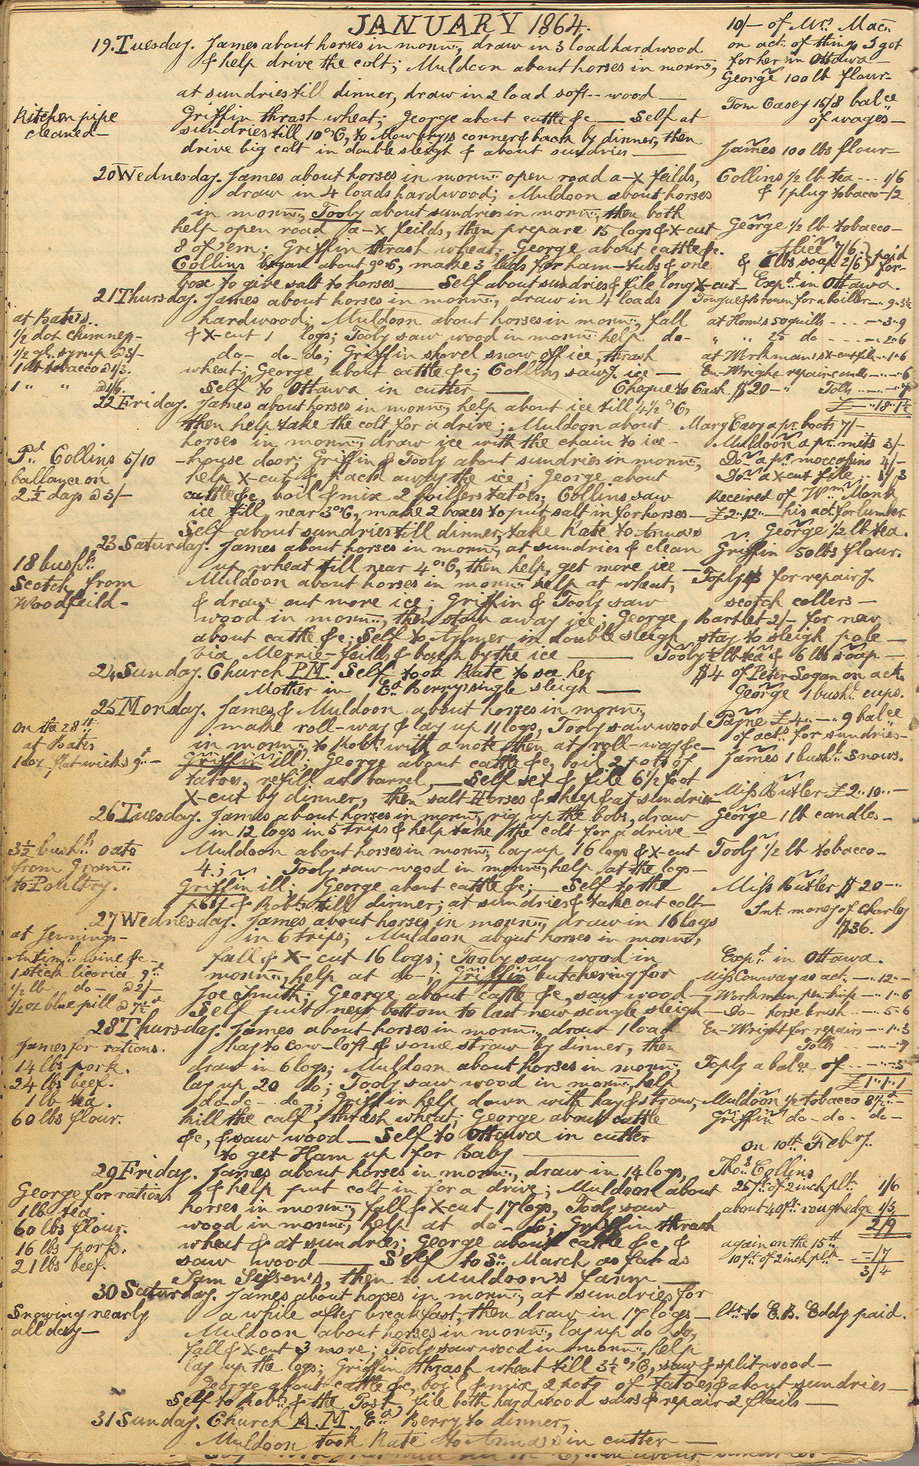 JANUARY 1864.
19. Tuesday. James about horses in mornn., draw in 3 load hardwood
& help drive the colt; Muldoon about horses in mornn.,
at sundries till dinner, draw in 2 load soft-wood
Griffin thrash wheat; George about cattle &c — Self at
sundries till 10 oC, to Mowbrys corner & back by dinner, then
drive big colt in double sleigh & about sundries
Kitchen pipe
cleaned —
10/- of Mrs. Mac.
on act. of things I got
for her in Ottawa
George 100 lb flour
Tom Casey 15/8 balce
of wages —
James 100 lbs flour
20 Wednesday. James about horses in mornn. open road a-x feilds,
draw in 4 loads hardwood; Muldoon about horses
in mornn., Tooly about sundries in mornn., then both
help open road a-x feilds, then prepare 15 logs & x-cut
8 of 'em; Griffin thrash wheat; George about cattle &c.
Collins began about 9 oC, make 3 lids for ham-tubs & one
box to give salt to horses — Self about sundries & file long x-cut
Collins ½ lb tea — 1/6
& 1 plug tobacco -/2
George ½ lb tobacco —
Alice 7/6 } paid
& lbs soap 2/6 } for
Expd. in Ottawa.
21 Thursday. James about horses in mornn., draw in 4 loads
hardwood; Muldoon about horses in mornn., fall
& x-cut 1 logs; Tooly saw wood in mornn. help do-
do- do- do; Griffin shovel snow off ice, thrash
wheat; George about cattle &c; Collins sawg. ice —
Self to Ottawa in cutter — Cheque to Cash $20 —
at Bate's.
½ doz chimneys
½ gl. syrup
1 lb tobacco
1 " "
at Hom's 50 quills — 3-9
" " 25 do — 2-6
at Workman's x-cut file — 1-6
En-Wright repairs — 6
Tolls — 7
22 Friday. James about horses in mornn., help about ice till 4½ oC,
then help take the colt for a drive; Muldoon about
horses in mornn., draw ice with the chain to ice-
-house door; Griffin & Tooly about sundries in mornn.,
help x-cut & pack away the ice; George about
cattle &c, boil & mix 2 boilers tatoes; Collins saw
ice till near 3 oC, make 2 boxes to put salt in for horses —
Self about sundries till dinner, take Kate to Armds
Pd. Collins 5/10
ballance on
2½ days @ 5/-
Mary Casey a pr. boots 7/-
Muldoon a pr. mitts 3/-
Do- a pr. moccasins 4/-
Do- a x-cut file 1/3
Received of Wm. Monk
£2-12- his act. for lumber
George ½ lb tea.
23 Saturday. James about horses in mornn., at sundries & clean
up wheat till near 4 oC, then help get more ice —
Muldoon about horses in mornn. help at wheat,
& draw out more ice; Griffin & Tooly saw
wood in mornn., then stow away ice; George
about cattle &c; Self to Aylmer in double sleigh
via Merrie-feilds & back by the ice
18 bushs.
Scotch from
Woodfeild —
Griffin 50 lbs flour.
for repairg.
scotch collers —
Bartlet 2/- for new
stay to sleigh pole —
Tooly lb tea & 6 lbs soap —
24 Sunday. Church P.M. Self took Kate to see her
Mother in Ed. Berry single sleigh
$4 of Peter Sogan on act.
George 1 bush. cups.
25 Monday. James & Muldoon about horses in mornn.,
make roll-way & lay up 11 logs, Tooly saw wood
in mornn., to Robt with a note, then at roll-way &c —
Griffin ill; George about cattle &c, boil 2 pots of
tatoes, refill ash barrel, — Self set & file 6½ foot
x-cut by dinner, then salt horses & sheep & at sundries
On the 28th
at Bates
1 doz flat wicks
Payne £4 — 9 balce
of act. for sundries —
James 1 bush. snows.
Miss Butler £2-10-
26 Tuesday. James about horses in mornn., rig up the bobs, draw
in 12 logs in 5 trips & help take the colt for a drive —
Muldoon about horses in mornn., lay up 16 logs & x-cut
4; Tooly saw wood in mornn., help at the logs —
Griffin ill; George about cattle &c; — Self to the
& Robts till dinner; at sundries & take out colt —
3½ bushs. oats
from Gran.
to Poultry.
George 1 lb candles —
Tooly ½ lb tobacco —
Miss Butler $20 —
Int. money of Charley
$36.
27 Wednesday. James about horses in mornn., draw in 16 logs
in 6 trips; Muldoon about horses in mornn.,
fall & x-cut 16 logs; Tooly saw wood in
mornn., help at do-; Griffin butchering for
Joe Smith; George about cattle &c, saw wood —
Self put new bottom to last new single sleigh —
at Jennings —
Antim. wine &c —
1 stick licorice
½ lb do- @ 2/-
½ oz blue pill
Expd. in Ottawa.
Miss Conway as act. — 12-
Workman pen knife — 1-6
Do- horse brush — 5-6
En-Wright for repairs — 1-3
Tolls — 9
28 Thursday. James about horses in mornn., draw 1 load
hay to cow-loft & some straw by dinner, then
draw in 6 logs; Muldoon about horses in mornn.,
lay up 20 do; Tooly saw wood in mornn., help
do- do- do-; Griffin help down with hay & straw,
kill the calf, thrash wheat; George about cattle
&c, & saw wood — Self to Ottawa in cutter
to get Ham up for baby
James for rations.
14 lbs pork.
24 lbs beef.
1 lb tea.
60 lbs flour.
a balce of
£1-1-1
Muldoon ½ tobacco
Griffin do- do- do-
On 10th Feby.
29 Friday. James about horses in mornn., draw in 14 logs,
& help put colt in for a drive; Muldoon about
horses in mornn., fall & x-cut 17 logs; Tooly saw
wood in mornn., help at do- do; Griffin thrash
wheat & at sundries; George about cattle &c &
saw wood — Self to So. March as far as
Sam Sisson's, then to Muldoon's farm —
George for rations
1 lb tea.
60 lbs flour.
16 lbs pork.
21 lbs beef.
Thos. Collins
25 ft. of 2 inch plk. 1/6
about 40 ft. rough edge 1/3
2/9
again on the 15th
10 ft. of 2 inch plk — -/7
3/4
30 Saturday. James about horses in mornn., at sundries for
a while after breakfast, then draw in 17 logs —
Muldoon about horses in mornn., lay up do do,
fall & x-cut 3 more; Tooly saw wood in mornn., help
lay up the logs; Griffin thrash wheat till 3½ oC, saw & split wood —
George about cattle &c, boil & mix 2 pots of tatoes & about sundries —
Self to Robts & the Post, file both hardwood saws & repair 2 flails —
Snowing nearly
all day —
Ltr. to E. B. Eddy paid.
31 Sunday. Church A.M. Ed. Berry to dinner,
Muldoon took Kate to Armds in cutter —